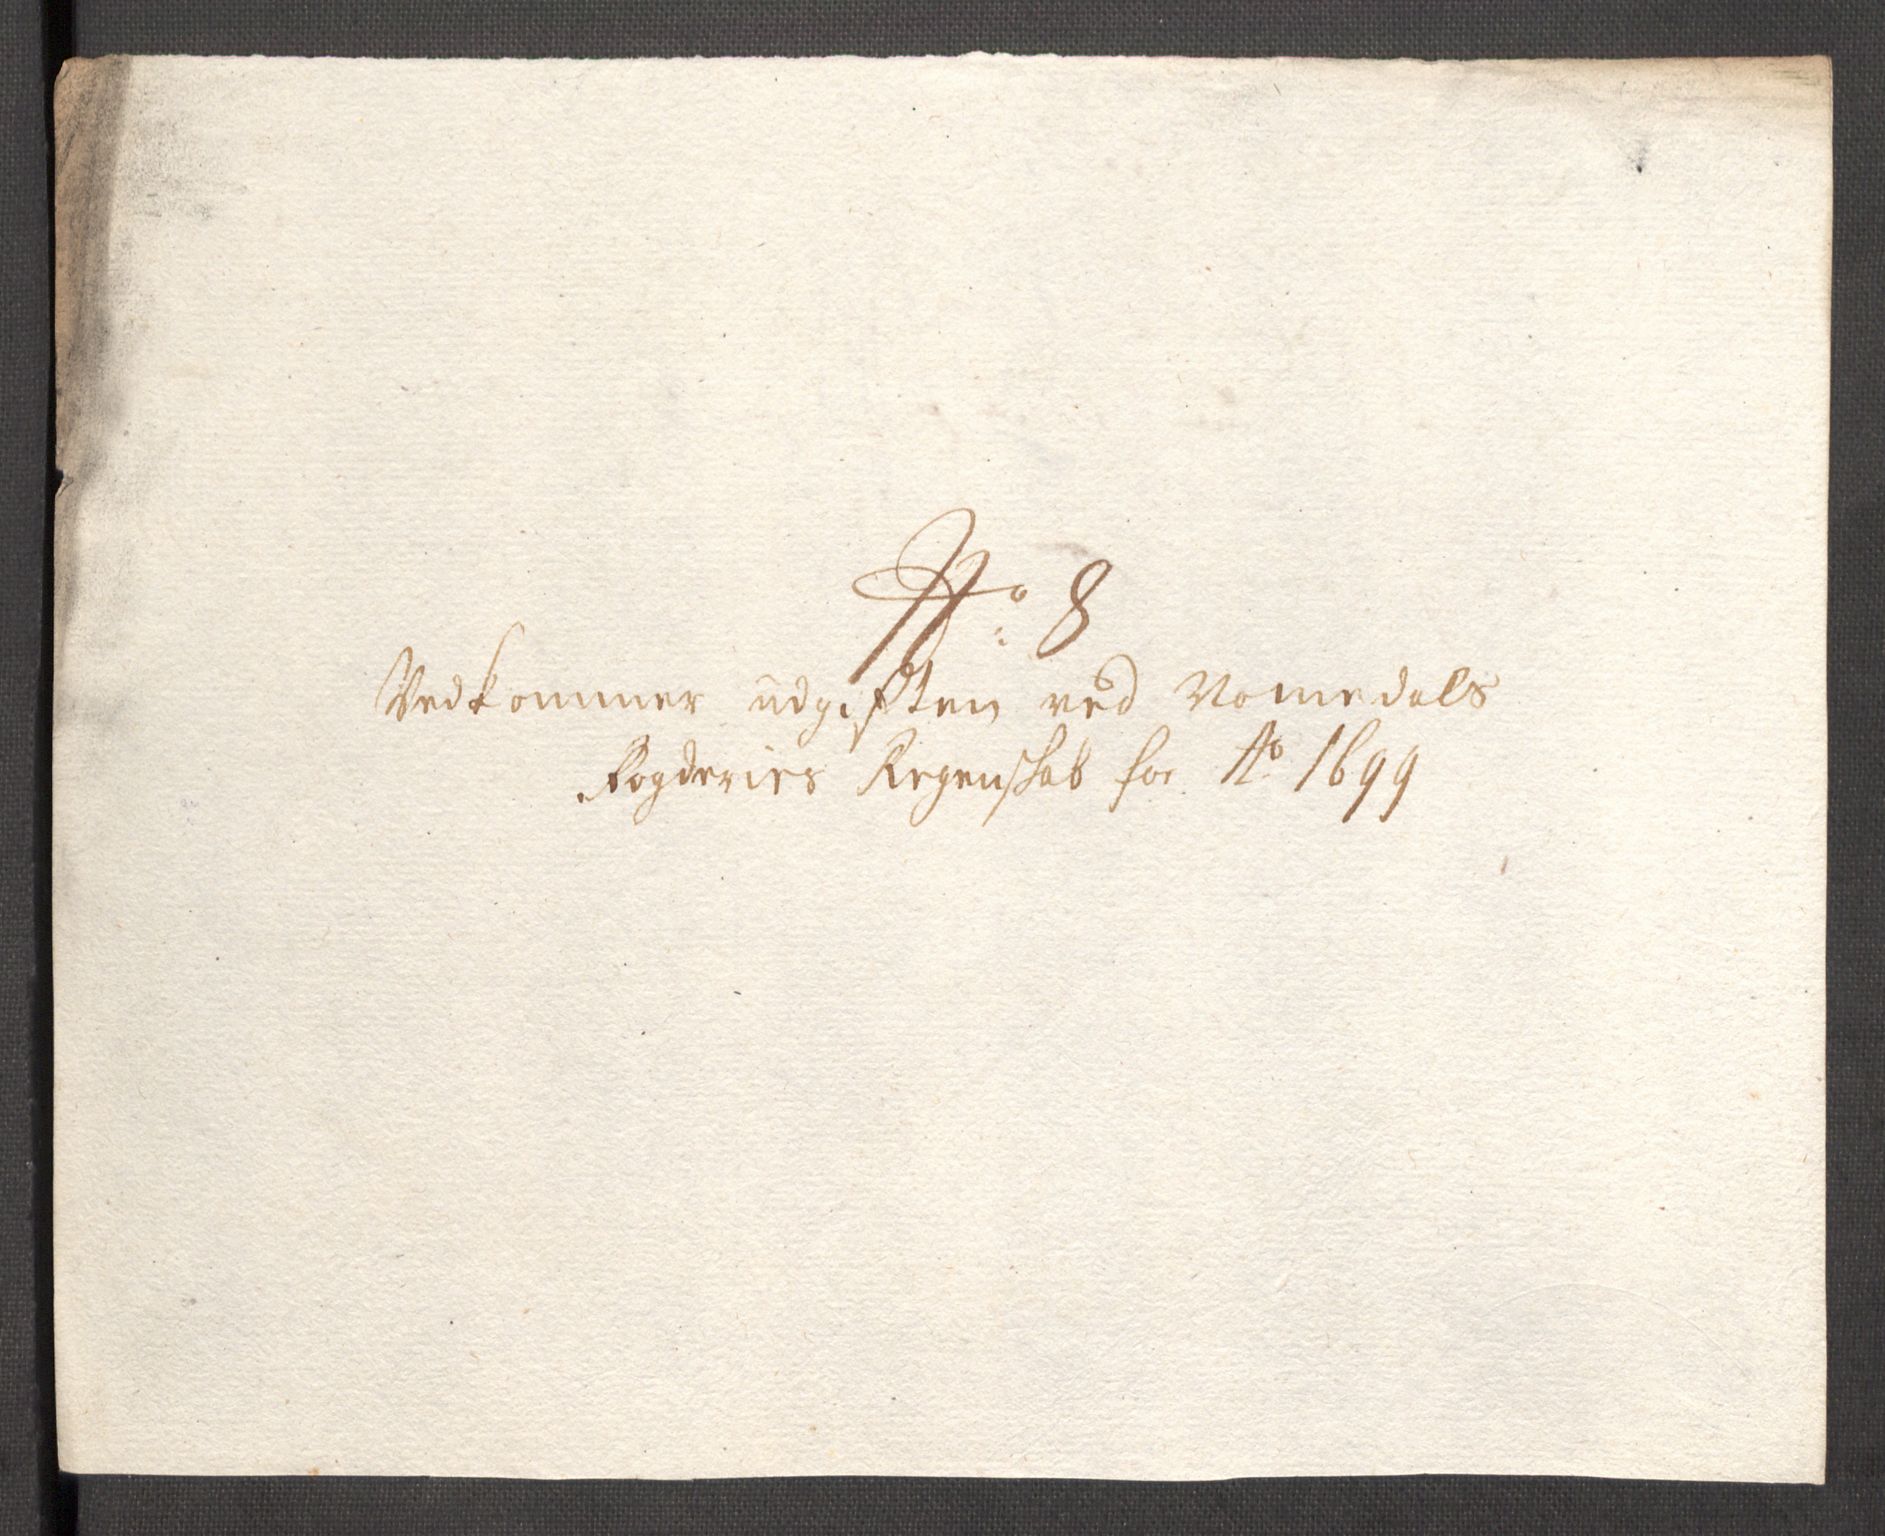 No: 8
Vedkommer udgiften ved Nomedals
Fogderies Regenskab for Ao 1699